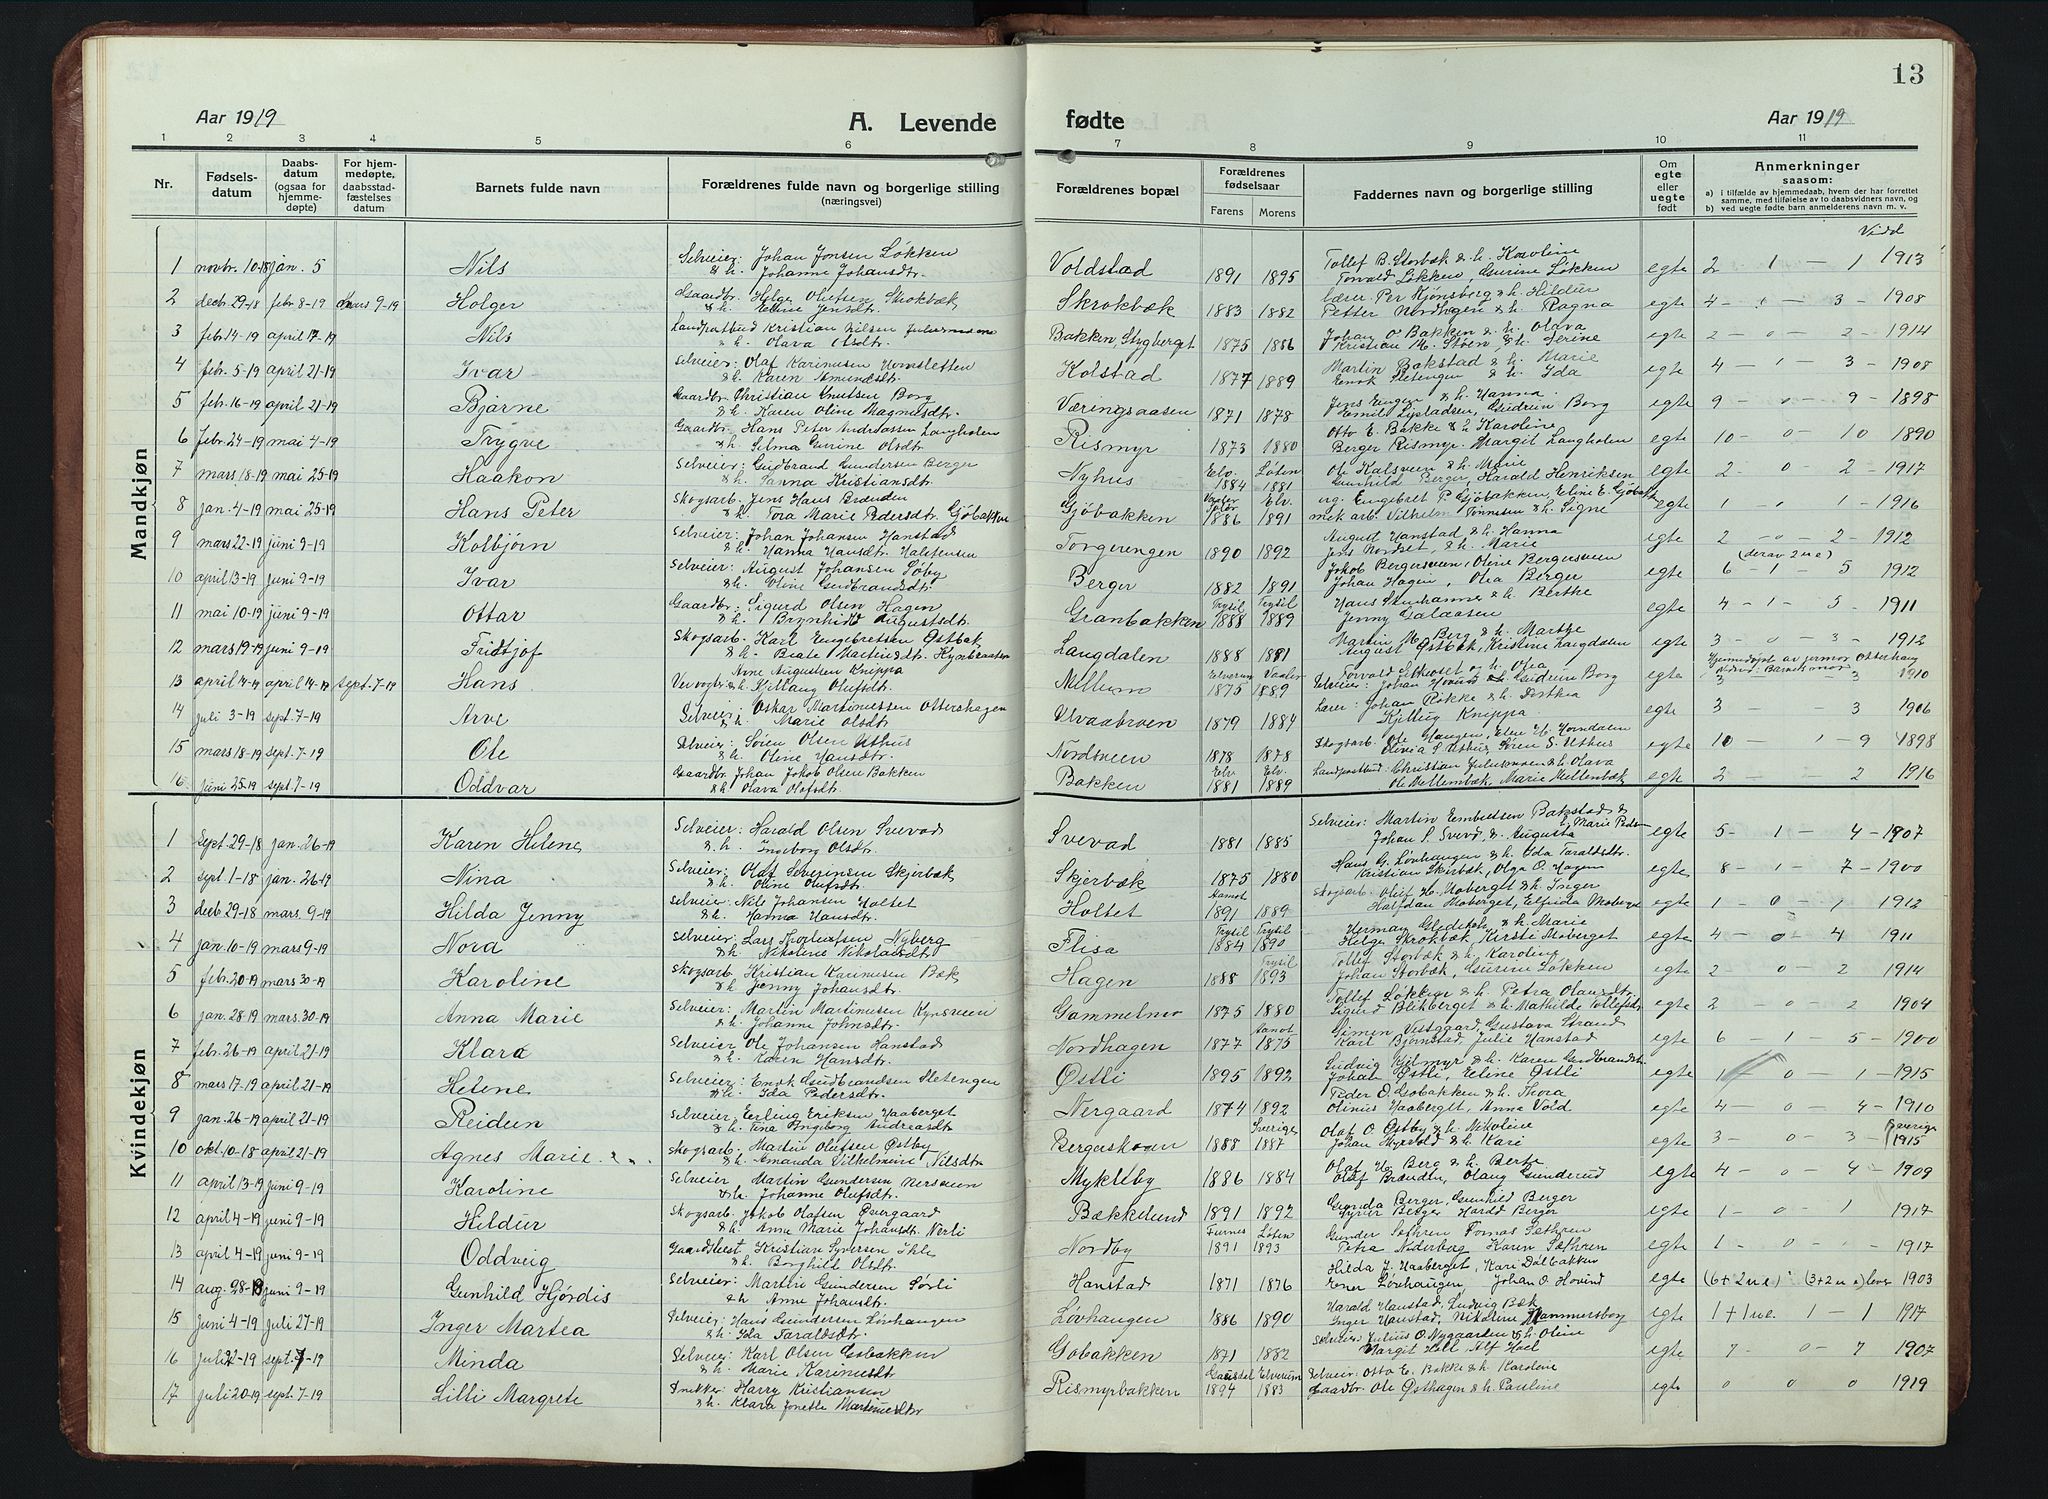 13
Aar 1919
A. Levende
fødte
Aar 1919
1 2 3 4 5 6 7 8 9 10 11
Nr.
Fødsels-
datum
Daabs-
datum
(ogsaa for
hjemme-
døpte)
For hjem-
medøpte,
daabsstad-
fæstelses
datum
Barnets fulde navn
Forældrenes fulde navn og borgerlige stilling
(næringsvei)
Forældrenes bopæl
Forældrenes
fødselsaar
Farens Morens
Faddernes navn og borgerlige stilling
Om
egte
eller
uegte
født
Anmerkninger
saasom:
a) i tilfælde av hjemmedaab, hvem der har forrettet
samme, med tilføielse av to daabsvidners navn, og
b) ved uegte fødte barn anmelderens navn m. v.
Vidd
Mandkjøn
1 novbr. 10-18 jan. 5 Nils Selveier: Johan Jonsen Løkken
& h. Johanne Johansdtr. Voldstad 1891 1895 Tollef B. Storbæk & h. Karoline
Torvald Løkken, Gurine Løkken egte 2 - 1 - 1 1913
2 decbr. 29-18 febr 8-19 mars 9-19 Holger Gaardbr. Helge Olufsen Skrokbæk
& h. Eline Jensdtr. Skrokbæk 1883 1882 lærer Per Kjønsberg & h. Hildur
Petter Nordhagen & h. Ragna egte 4 - 1 - 3 - 1908
3 febr. 14-19 april 17-19 Nils Landpostbud Kristian Nilsen
& h. Olava Olsdtr. Bakken, Stygberget 1875 1886 Johan O. Bakken & h. Olava
Kristian M. Støen & h. Serine egte 2 - 0 - 2 - 1914
4 febr. 5-19 april 21-19 Ivar Selveier: Olaf Karinusen Homsletten
& h. Karen Amundsdtr. Kolstad 1877 1889 Martin Bakstad & h. Marie
Enok Sletengen & h. Ida egte 4 - 1 - 3 - 1908
5 febr. 16-19 april 21-19 Bjarne Gaardbr. Christian Knutsen Borg
& h. Karen Oline Magnusdtr. Væringsaasen 1871 1878 Jens Engen & h. Hanna.
Gudrun Borg egte 9 - 0 - 9 - 1898
6 febr. 24-19 mai 4-19 Trygve Gaardbr. Hans Peter Andreassen Langholen
& h. Selma Gurine Olsdt. Rismyr 1873 1880 Otto E. Bakke & h Karoline
Berger Rismyr. Margit Langholen egte 10 - 0 - 10 1890
7 mars 18-19 mai 25-19 Haakon Selveier: Gudbrand Gundersen Berger
& h. Sanna Kristiansdtr. Nyhus Elv. 1884 Løten 1881 Ole Kalsveen & h. Marie
Gunhild Berger, Harald Henriksen egte 2 - 0 - 2 - 1917
8 jan. 4-19 mai 25-19 Hans Peter Skogsarb. Jens Hans Brænden
& h. Tora Marie Pedersdtr. Gjøbakken Gjøbakken 1886 Elv. 1891 ug. Engebret P. Gjøbakken, Eline E. Gjøbakk
mek arb. Vilhelm Tønnsten & h. Signe egte 1 - 0 - 1 - 1916
9 mars 22-19 juni 9-19 Kolbjørn Selveier: Johan Johansen Hanstad
& h. Hanna Hansdtr. Halstensen Torgerengen 1890 1892 August Hanstad & h. Hanna
Jens Nordset, & h. Marie egte 2 - 0 - 2 - 1912
10 april 13-19 juni 9-19 Ivar Selveier: August Johansen Søby
& h. Oline Gudbrandsdtr. Berger 1882 1891 Jakob Bergersveen, Oline Bergersveen
Johan Hagen, Olea Berger egte (derav 2 u e)
6 - 1 - 5 1912
11 mai 10-19 juni 9-19 Ottar Gaardbr: Sigurd Olsen Hagen
& h. Brynhild Augustsdt. Granbakken Trysil 1888 Trysil 1889 Hans Stenhanne & h. Berthe
Jenny Galaasen egte 4 - 1 - 5 - 1911
12 mars 19-19 juni 9-19 Fridtjof Skogsarb. Karl Engebretsen Østbæk
& h. Beate Martinsdtr. Kynbraaten Langdalen 1888 1881 Martin M. Berg & h. Marthe
August Østbæk, Kristine Langdalen egte 3 - 0 - 3 - 1912
13 april 4-19 april 14-19 sept. 7-19 Hans Arne Augusten Knippa
& h. Kjellaug Olufsdt. Mellum Elverum 1875 Vaaler 1889 Torvald Sæthoset og h. Olea
Selveier: Johan Hovind & h. Gudrun Borg egte Hjemmedøpt av jormor Otterhaug
3 3 1910
14 juli 3-19 sept. 7-19 Arve Selveier: Oskar Martinussen Ottershagen
& h. Marie Olsdt. Ulvaabroen 1879 1884 Lærer: Johan Røkke & h. Dorthea
Kjellug Knippa. egte 3 - - 3 1906
15 mars 18-19 sept. 7-19 Ole Selveier: Søren Olsen Uthus
& h. Oline Hansdt. Nordsveen 1878 1878 Skogsarb: Ole Haugen, Elen H. Horndalen
Olivia S. Uthus, Søren S. Uthus egte 10 - 1 - 9 1898
16 juni 25-19 sept. 7-19 Oddvar Gaardbr. Johan Jakob Olsen Bakken
& h Olava Olafsdt. Bakken Elv. 1881 Elv. 1889 Landpostbud: Christian Julusmoen & h. Olava
Ole Mellembæk, Marie Mellembæk egte 2 - 2 - 1916
Kvindekjøn
1 sept. 29-18 jan. 26-19 Karen Helene Selveier: Harald Olsen Svevad
& h. Ingeborg Olsdt. Svevad 1881 1885 Selveier: Martin Embretsen Bakstad &
Marie Peds
Johan S. Svevd, & Augusta egte 5 - 1 - 4 - 1907
2 sept 1-18 jan. 26-19 Nina Selveier: Olaf Severinsen Skjerbæk
& h. Oline Olufsdt. Skjerbæk 1875 1880 Hans G. Løvhaugen & h. Ida Taraldsdtr.
Kristian Skerbæk, Olga O. Hagen egte 8 - 1 - 7 - 1900
3 decb. 29-18 mars. 9-19 Hilda Jenny Selveier: Nils Johansen Holtet
& h. Hanna Hansdtr. Holtet Aamot 1891 1889 skogsarb. Oluf H. Moberget & h. Inger
Halfdan Moberget, Elfrida Moberget egte 1 - 0 - 1 1912
4 jan. 10-19 mars 9-19 Nora Selveier: Lars Thorleifsen Nyberg
& h. Nikoline Nikolaisdt. Flisa Trysil 1884 Trysil 1890 Herman Gledikoly & h. Marie
Helge Skrokbæk, Kirsti Moberget egte 4 - 0 - 4 1911
5 febr. 20-19 mars 30-19 Karoline Skogsarb. Kristian Karinusen Bæk
& h Jenny Johansdt. Hagen 1888 Trysil 1893 Tollef Storbæk & h. Karoline
Johan Storbæk, Gurine Løkken egte 2 - 0 - 2 1914
6 jan. 28-19 mars. 30-19 Anna Marie Selveier: Martin Martinusen Kynsveen
& h. Johanne Johnsdtr. Gammelmo 1875 1880 Tollef Løkken & h. Petra Olausdtr
Sigurd Blikberget & h. Mathilde Tollefsdtr egte 2 - 0 - 2 1904
7 febr. 26-19 april 21-19 Klara Selveier Ole Johansen Hanstad
& h. Karen Hansdtr. Nordhagen 1877 Aamot 1875 Simen Vestgaard, Gustava Strand
Karl Bjørnstad, Julie Hanstad egte 6 - 1 - 5 - 1900
8 mars 17-19 april 21-19 Helene Selveier: Enok Gudbrandsen Sletengen
& h. Ida Pedersdtr. Østli 1895 1892 Ludvig Kilmyr & h. Karen Gudbrandsdtr
Johan Østli, Eline Østli egte 1 0 - 1 - 1915
9 jan. 26-19 april 21-19 Reidun Selveier: Eerling Eriksen Haaberget
& h. Tina Ingeborg Andreasdt. Nergaard 1874 1892 Peder O. Gobakken & h. Thora
Olinus Haaberget, Anna Vold egte 4 - 0 - 4 - 1910
10 okt. 10-18 april 21-19 Agnes Marie Skogsarb. Martin Olufsen Østby
& h. Amanda Vilhelmine Nilsdtr Sverige 1888 1887 Olaf O. Østby & h. Nikoline
Johan Myrvold & h. Kari egte 3 - 0 - 3 - Sverige 1915
11 april 13-19 juni 9-19 Karoline Selveier Martin Gundersen Nersveen
& h. Johanne Olufsdt. Mykleby 1886 1884 Olaf H. Berg & h. Berte
Olaf Brænden, Olaug Gunderud egte 4 - 0 - 4 - 1909
12 april 4-19 juni 9-19 Hildur Skogsarb. Jakob Olafsen Øvergaard
& h. Anne Marie Johansdt. Nerli Bækkelund 1891 1892 Gunda Berger, Gunhild Berger
Syver Berger, Harald Berger egte 1 - 0 - 1 1917
13 april 4-19 juni 9-19 Oddveig Kristian Syversen Ihle
& h. Borghild Olsdt. Nordby Furnes 1891 Løten 1893 Gunder Sæthren Tomas Sæthren
Petra Niderhag, Karen Sæthren egte 1 - 0 - 1917
14 aug. 28-18 juni 9-19 Gunhild Hjørdis Selveier: Martin Gundersen Sørli
& h. Anne Johansdt. Hanstad 1871 1876 Hilda J. Haaberget, Kari Dalbakken
Ener Løvhaugen, Johan O. Hovind egte (6 + 2 u e) (3 + 2 u e) lever 1903
15 Juni 4-19 juli 27-19 Inger Martea Selveier: Hans Gundersen Løvhaugen
& h. Ida Taraldsdtr. Løvhaugen 1886 1890 Harald Hanstad, Ludvig Bæk
Inger Hanstad, Nikoline Hammersborg egte 1 + 1 u e. 1 - 1 1917
16 juli 22-19 sept. 7-19 Minda Selveier: Karl Olsen Gobakken
& h. Marie Karinusdt. Gobakken 1871 1882 Selveier Julius O. Nygaarden & h. Oline
Margit Hoel Alf Hoel egte 7 - 0 - 7 1907
17 juli 20-19 sept. 7-19 Lilli Margrete Snekker: Harry Kristiansen
& h. Klara Jonette Martinusdtr Rismyrbakken Gausdal 1894 Elverum 1883 Selveier: Otto E. Bakke & h. Karoline
Gaardbr. Ole Østhagen & h. Pauline egte 0 0 0 1919